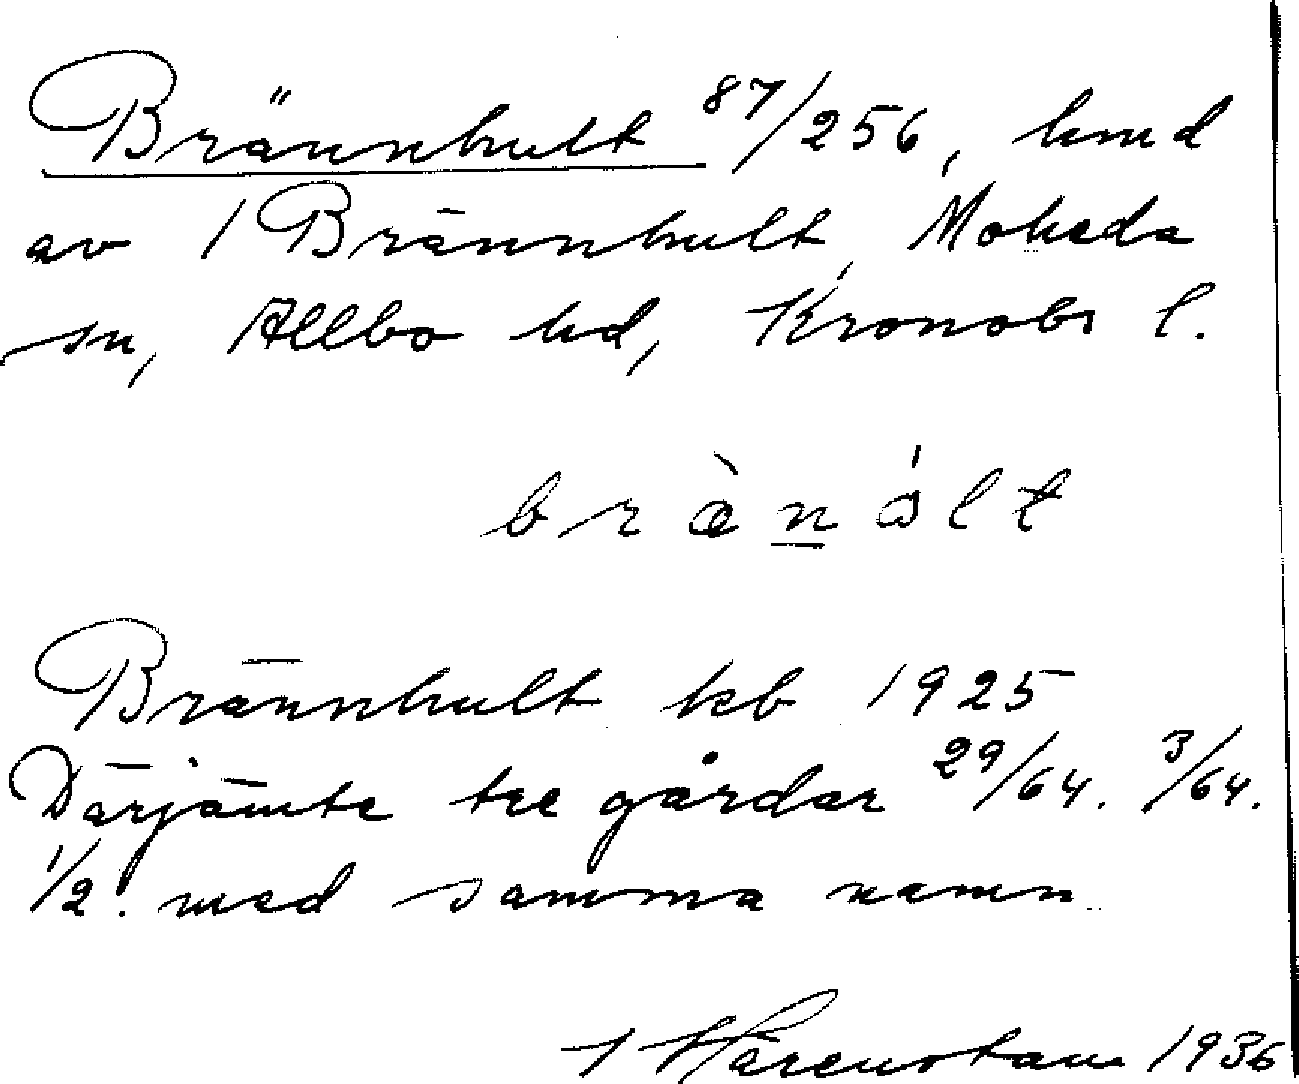 Brännhult 87/256, hmd
av 1 Brännhult, Moheda
sn, Allbo hd, Kronobs l.
bræ̀nált
Brännhult kb 1925
Därjämte tre gårdar 29/64. 3/64.
1/2. med samma namn
1936